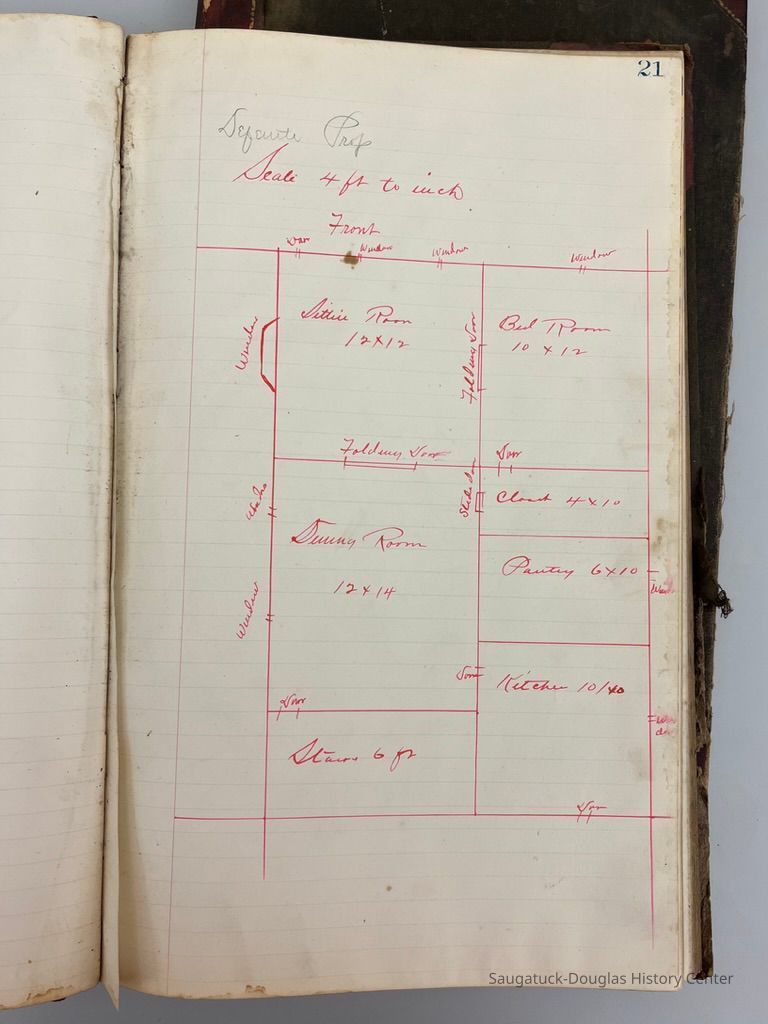 21
Scale 4 ft to inch
Front
Door
Window
Window
Window
Sittin Room
12 x 12
Bed Room
10 x 12
Window
Folding Door
Folding Door
Door
Slide door
Closet 4 x 10
Dining Room
12 x 14
Pantry 6 x 10
Window
Door
Kitchen 10/10
Door
Stairs 6 ft
Door
Saugatuck-Douglas History Center